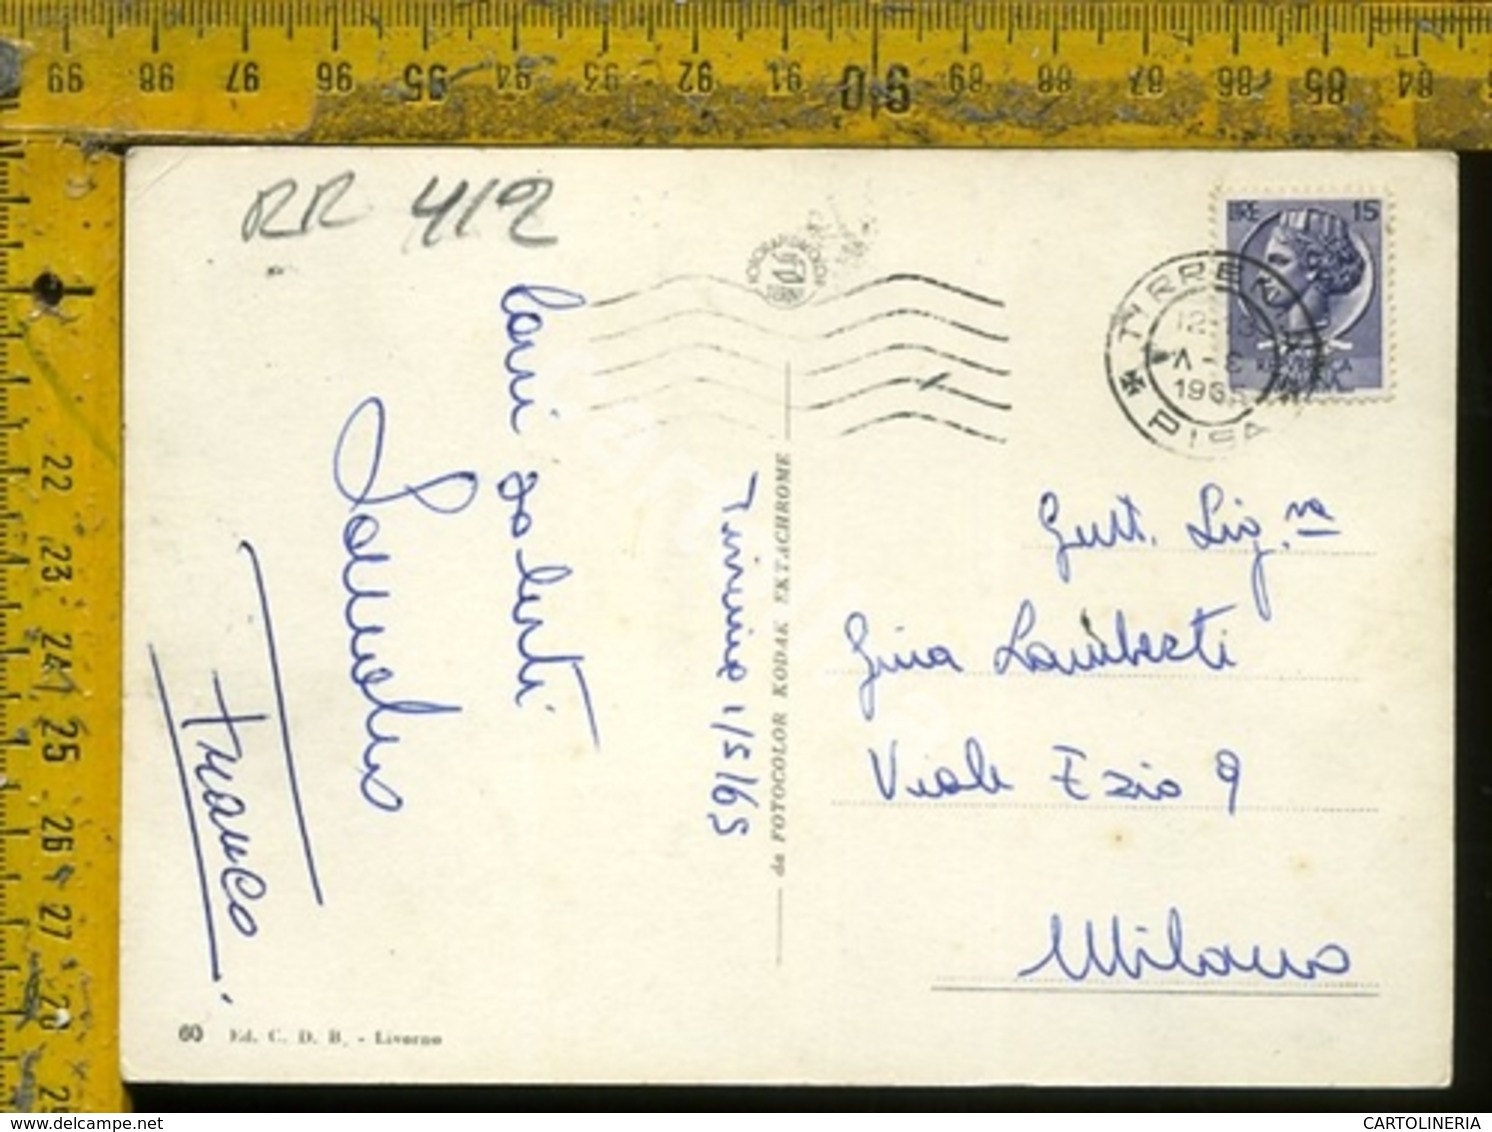 99 98 97 96 95 94 93 92 91 90 89 88 87 86 85 84
22 23 24 25 26 27 28 29
RR 412
LIRE 15
TIRRENIA
12-13
3-V
196
PISA
Cari saluti
Franco
Tirrenia 1/5/65
da FOTOCOLOR KODAK EKTACHROME
Gent. Sig.na
Gina Lamberti
Viale Ezio 9
Milano
60 Ed. C. D. B. - Livorno
CARTOLINERIA